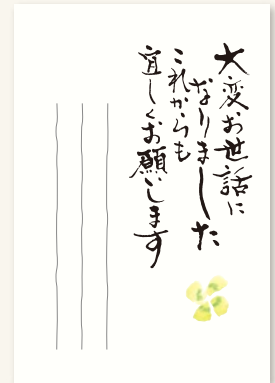 大変お世話に
なりました
これからも
宜しくお願いします